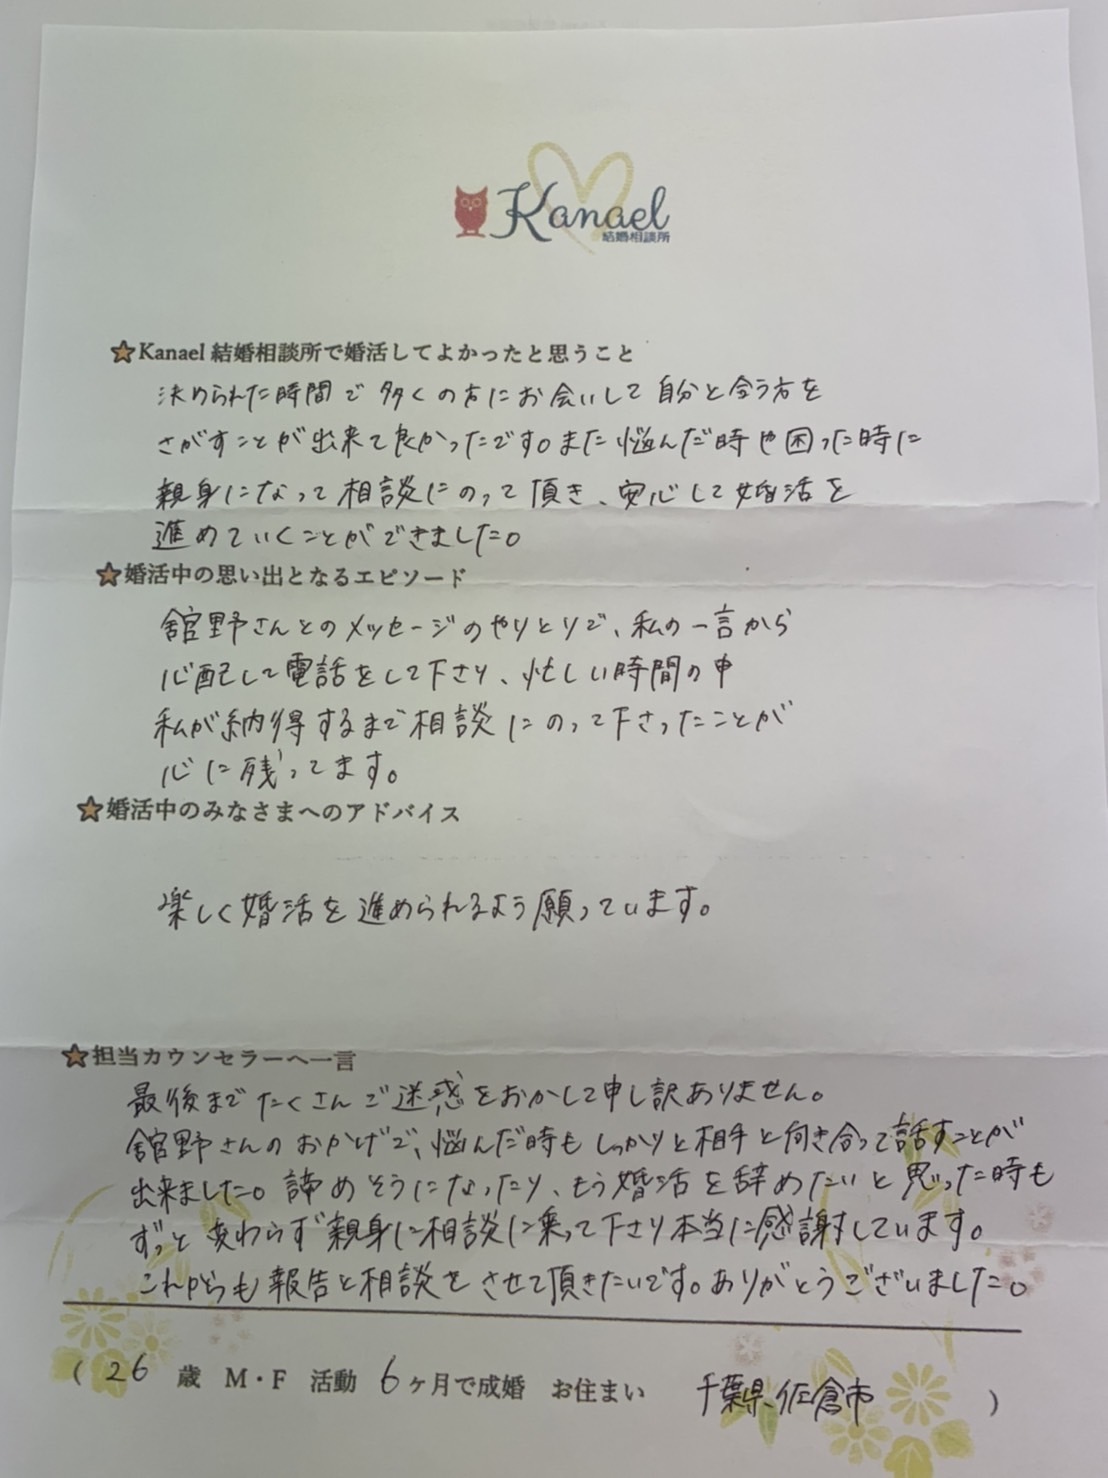 Kanael
結婚相談所
Kanael 結婚相談所で婚活してよかったと思うこと
決められた時間で多くの方にお会いして自分と合う方を
さがすことが出来て良かったです。また悩んだ時や困った時に
親身になって相談にのって頂き、安心して婚活を
進めていくことができました。
婚活中の思い出となるエピソード
舘野さんとのメッセージのやりとりで、私の一言から
心配して電話をして下さり、忙しい時間の中
私が納得するまで相談にのって下さったことが
心に残ってます。
婚活中のみなさまへのアドバイス
楽しく婚活を進められるよう願っています。
担当カウンセラーへ一言
最後までたくさんご迷惑をおかして申し訳ありません。
舘野さんのおかげで、悩んだ時もしっかりと相手と向き合って話すことが
出来ました。諦めそうになったり、もう婚活を辞めたいと思った時も
ずっと変わらず親身に相談に乗って下さり本当に感謝しています。
これからも報告と相談をさせて頂きたいです。ありがとうございました。
( 26 歳 M・F 活動 6ヶ月で成婚 お住まい 千葉県、佐倉市 )